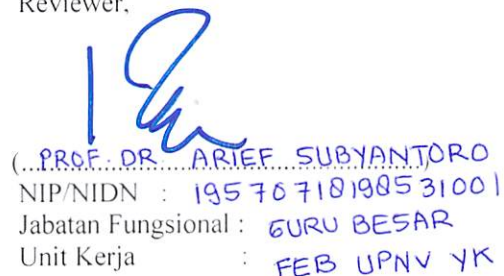 Reviewer,
(...PROF. DR. ARIEF SUBYANTORO
NIP/NIDN : 195707181985031001
Jabatan Fungsional : GURU BESAR
Unit Kerja : FEB UPNV YK